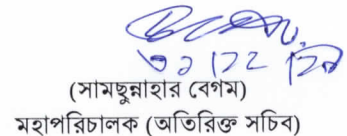 (সামছুন্নাহার বেগম)
মহাপরিচালক (অতিরিক্ত সচিব)